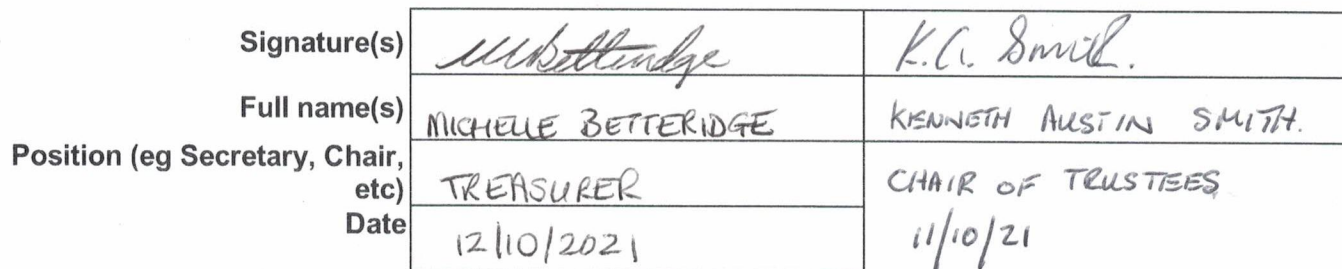 Signature(s) MBetteridge K.A. Smith.
Full name(s) MICHELLE BETTERIDGE KENNETH AUSTIN SMITH.
Position (eg Secretary, Chair,
etc) TREASURER CHAIR OF TRUSTEES
Date 12/10/2021 11/10/21